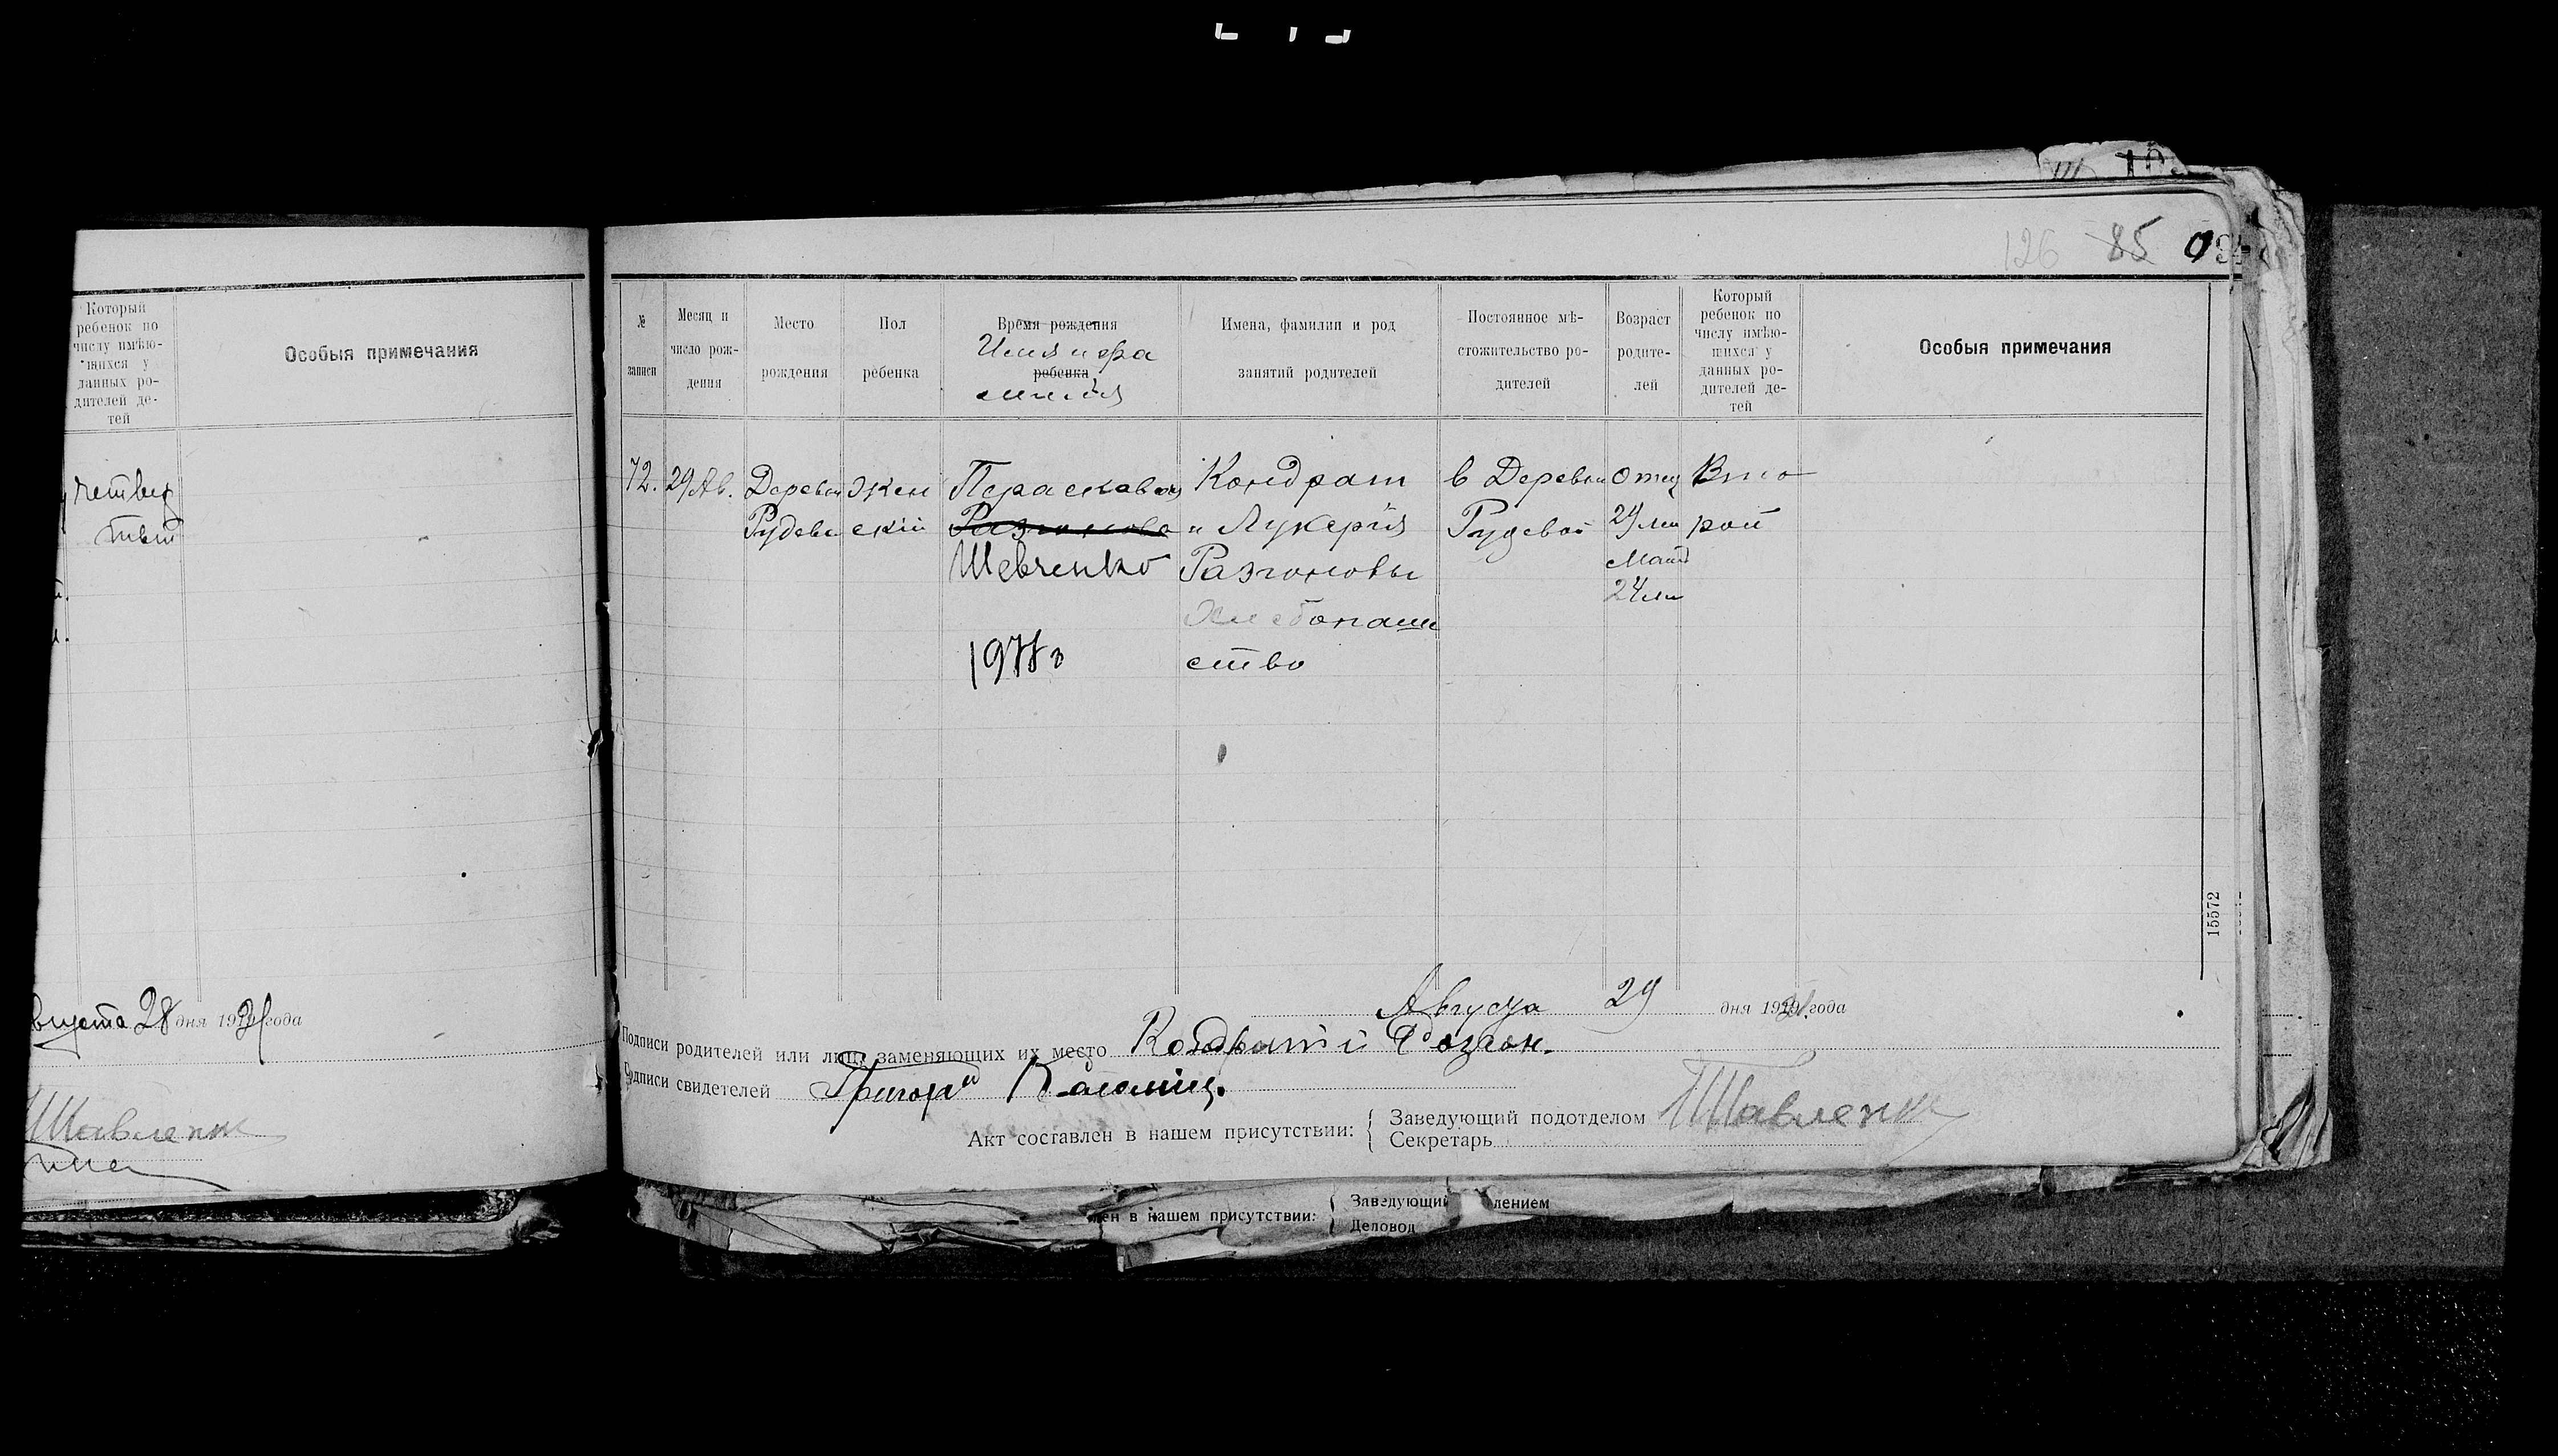 126 85
Который
ребенок по
числу имѣю-
щихся у
данных ро-
дителей де-
тей
Особыя примечания
четвер
тый
вгуста 28 дня 19 года
Шавленк
№
записи
Месяц и
число рож-
дения
Место
рождения
Пол
ребенка
Время рождения
Имя и фа
ребенка
милія
Имена, фамилии и род
занятий родителей
Постоянное мѣ-
стожительство ро-
дителей
Возраст
родите-
лей
Который
ребенок по
числу имѣю-
щихся у
данных ро-
дителей де-
тей
Особыя примечания
72. 29 Ав. Деревни Жен Параскавия Кондрат в Деревни Отец Вто
Рудева скій Разгонова и Лукерія Рудевой 29 лет рой
Шевченко Разгоновы Мать
24 лет
Хлебопаше
ство
15572
Августа 29 дня 19 года
Подписи родителей или лиц, заменяющих их место Кондратий Розгон.
Подписи свидетелей Григорий
Акт составлен в нашем присутствии: { Заведующий подотделом Шавленк
Секретарь
ен в нашем присутствии: { Заведующий лением
Деловод